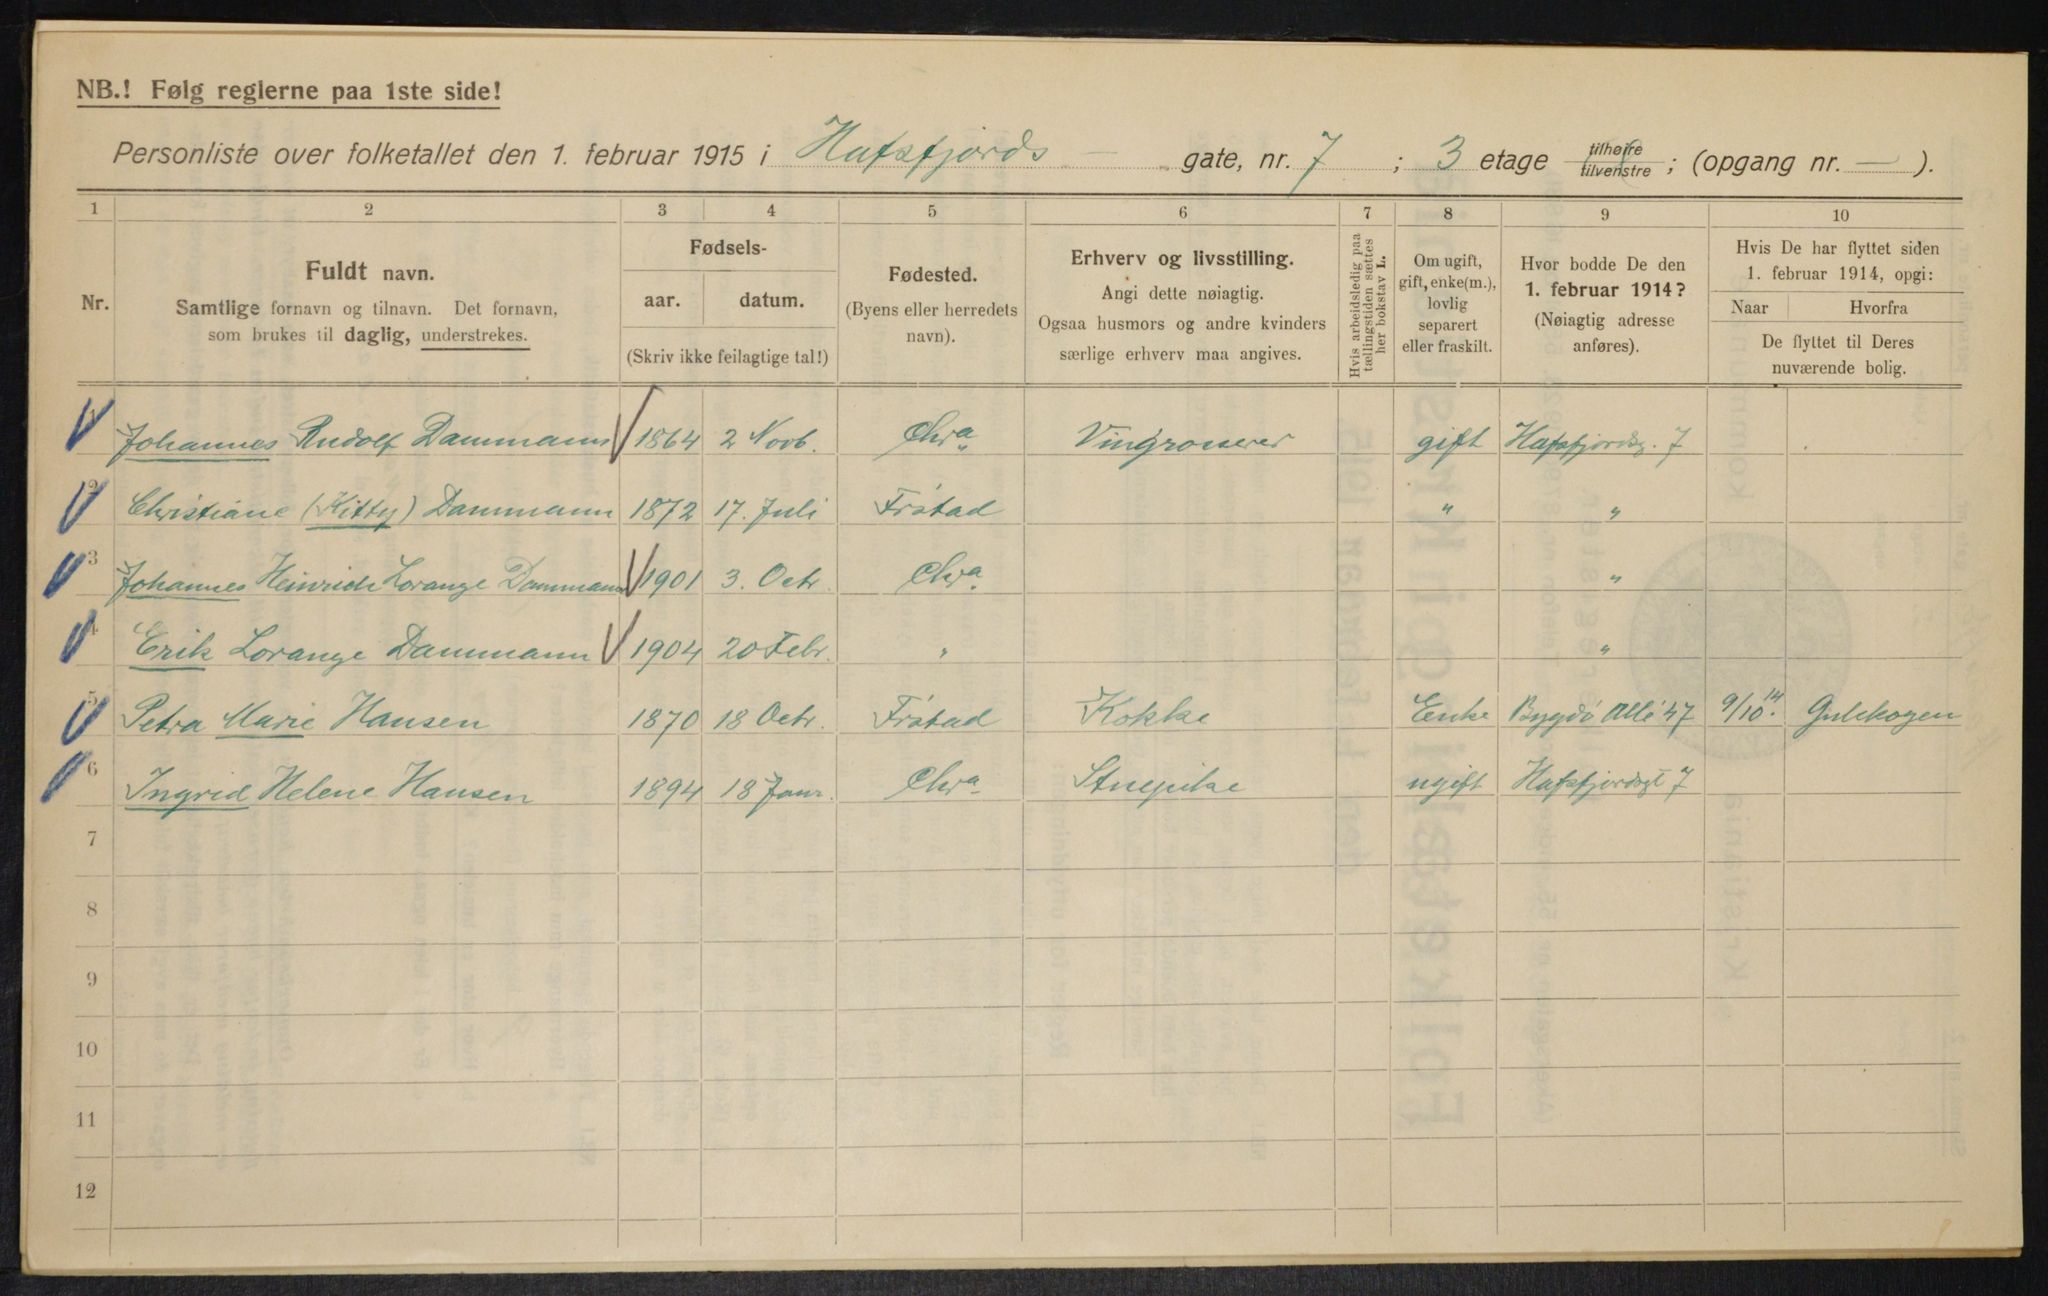 NB.! Følg reglerne paa 1ste side!
Personliste over folketallet den 1. februar 1915 i Hafsfjords — gate, nr. 7 ; 3 etage tilhøire tilvenstre ; (opgang nr. — ).
1 2 3 4 5 6 7 8 9 10
Nr.
Fuldt navn.
Samtlige fornavn og tilnavn. Det fornavn,
som brukes til daglig, understrekes.
Fødsels-
aar. datum.
(Skriv ikke feilagtige tal!)
Fødested.
(Byens eller herredets
navn).
Erhverv og livsstilling.
Angi dette nøiagtig.
Ogsaa husmors og andre kvinders
særlige erhverv maa angives.
Hvis arbeidsledig paa
tællingstiden sættes
her bokstav L.
Om ugift,
gift, enke(m.),
lovlig
separert
eller fraskilt.
Hvor bodde De den
1. februar 1914?
(Nøiagtig adresse
anføres).
Hvis De har flyttet siden
1. februar 1914, opgi:
Naar Hvorfra
De flyttet til Deres
nuværende bolig.
1 Johannes Rudolf Dammann 1864 2 Novb. Chra Vingrosserer gift Hafsfjordsg. 7
2 Christiane (Kitty) Dammann 1872 17. Juli Fr.stad " "
3 Johannes Heinrich Lorange Dammann 1901 3. Octr. Chra. "
4 Erik Lorange Dammann 1904 20 Febr. " "
5 Petra Marie Hansen 1870 18 Octr. Fr.stad Kokke Enke Bygdö Allé 47 9/10.14 Gulskogen
6 Ingrid Helene Hansen 1894 18 Janr. Chra. Stuepike ugift Hafsfjordsgt 7
7
8
9
10
11
12